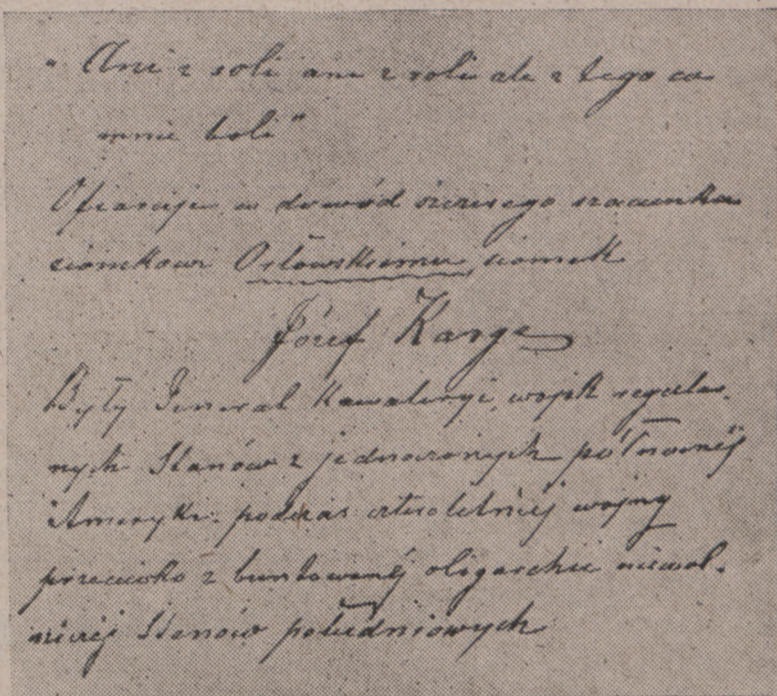 "Ani z soli ani z roli ale z tego co
mnie boli"
Ofiaruje w dowód szczerego szacunku
ziomkowi Orłowskiemu, ziomek
Józef Karge
Były Jenerał Kawaleryi, wojsk regular-
nych Stanów zjednoczonych półnownéj
Ameryki podczas cztroletniéj wojny
przeciwko zbuntowanéj oligarchii niewol-
niczéj Stanów południowych